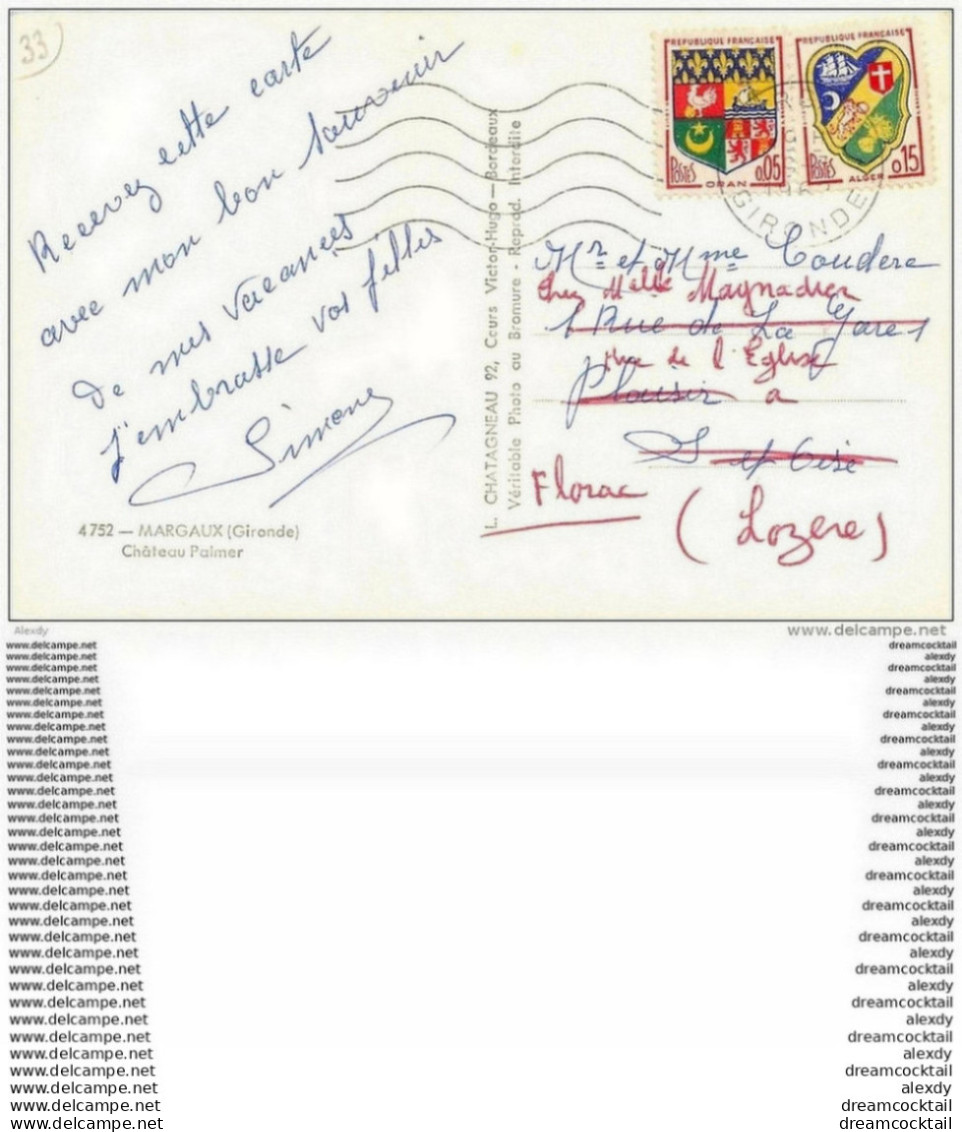 33
Recevez cette carte
avec mon bon souvenir
de mes vacances
J'embrasse vos filles
Simone
4752 — MARGAUX (Gironde)
Château Palmer
L. CHATAGNEAU 92, Cours Victor-Hugo — Bordeaux
Véritable Photo au Bromure - Reprod. Interdite
REPUBLIQUE FRANÇAISE
POSTES
ORAN
0,05
REPUBLIQUE FRANÇAISE
POSTES
ALGER
0,15
GIRONDE
Mr et Mme Couderc
chez Melle Maynadier
1 Rue de La Gare 1
Rue de l'Eglise
Plaisir a
S et Oise
Florac
(Lozere)
Alexdy
www.delcampe.net
www.delcampe.net dreamcocktail
www.delcampe.net alexdy
www.delcampe.net dreamcocktail
www.delcampe.net alexdy
www.delcampe.net dreamcocktail
www.delcampe.net alexdy
www.delcampe.net dreamcocktail
www.delcampe.net alexdy
www.delcampe.net dreamcocktail
www.delcampe.net alexdy
www.delcampe.net dreamcocktail
www.delcampe.net alexdy
www.delcampe.net dreamcocktail
www.delcampe.net alexdy
www.delcampe.net dreamcocktail
www.delcampe.net alexdy
www.delcampe.net dreamcocktail
www.delcampe.net alexdy
www.delcampe.net dreamcocktail
www.delcampe.net alexdy
www.delcampe.net dreamcocktail
www.delcampe.net alexdy
www.delcampe.net dreamcocktail
www.delcampe.net alexdy
www.delcampe.net dreamcocktail
www.delcampe.net alexdy
www.delcampe.net dreamcocktail
www.delcampe.net alexdy
www.delcampe.net dreamcocktail
www.delcampe.net alexdy
www.delcampe.net dreamcocktail
www.delcampe.net alexdy
www.delcampe.net dreamcocktail
www.delcampe.net dreamcocktail